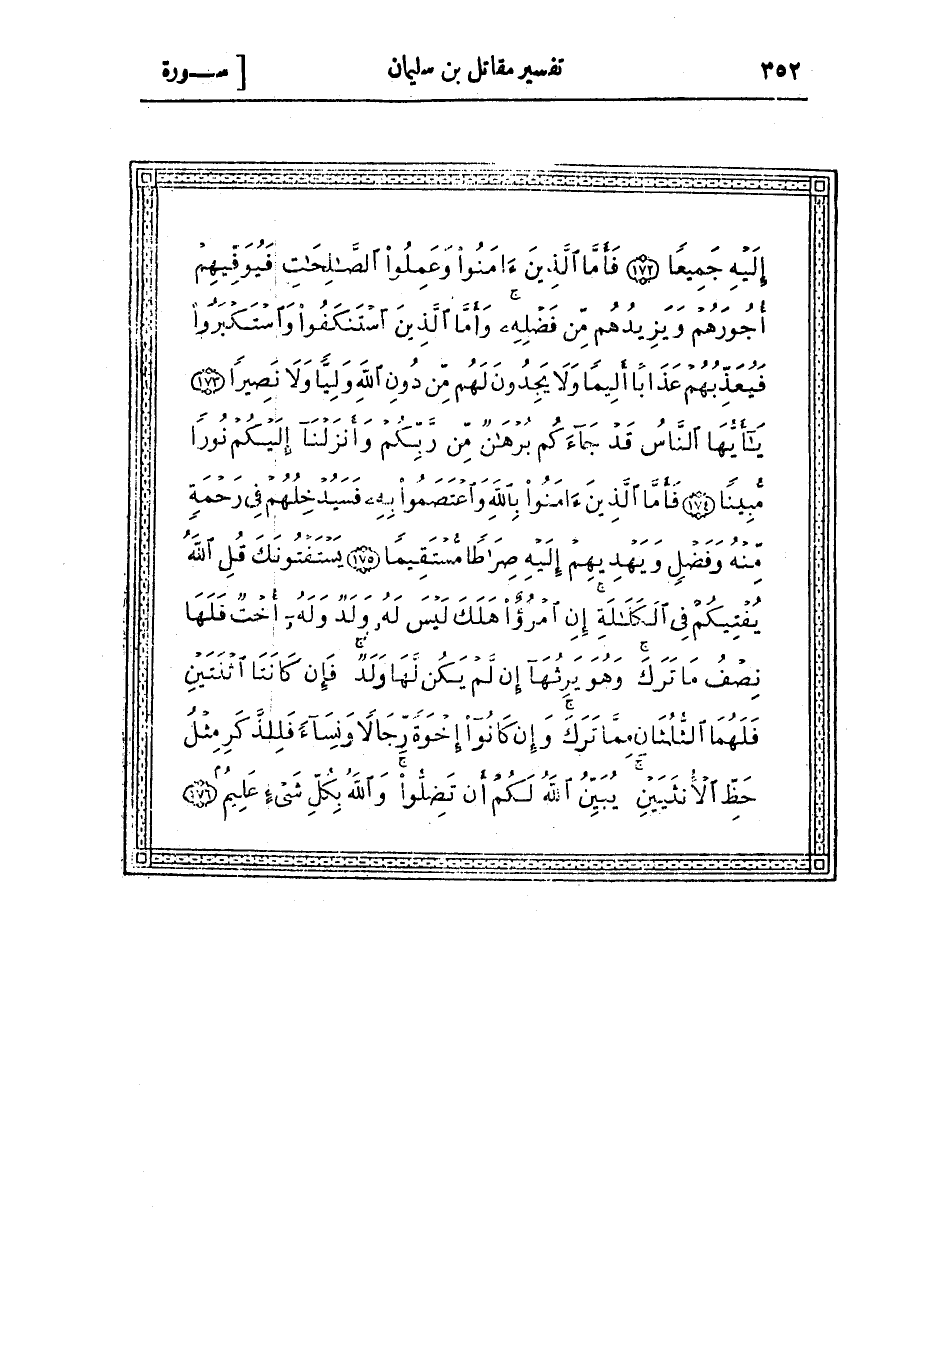 ٣٥٢ تفسير مقاتل بن سليمان [ سـورة
إِلَيْهِ جَمِيعًا ﴿١٧٢﴾ فَأَمَّا ٱلَّذِينَ ءَامَنُوا۟ وَعَمِلُوا۟ ٱلصَّـٰلِحَـٰتِ فَيُوَفِّيهِمْ
أُجُورَهُمْ وَيَزِيدُهُم مِّن فَضْلِهِۦ ۖ وَأَمَّا ٱلَّذِينَ ٱسْتَنكَفُوا۟ وَٱسْتَكْبَرُوا۟
فَيُعَذِّبُهُمْ عَذَابًا أَلِيمًا وَلَا يَجِدُونَ لَهُم مِّن دُونِ ٱللَّهِ وَلِيًّا وَلَا نَصِيرًا ﴿١٧٣﴾
يَـٰٓأَيُّهَا ٱلنَّاسُ قَدْ جَآءَكُم بُرْهَـٰنٌ مِّن رَّبِّكُمْ وَأَنزَلْنَآ إِلَيْكُمْ نُورًا
مُّبِينًا ﴿١٧٤﴾ فَأَمَّا ٱلَّذِينَ ءَامَنُوا۟ بِٱللَّهِ وَٱعْتَصَمُوا۟ بِهِۦ فَسَيُدْخِلُهُمْ فِى رَحْمَةٍ
مِّنْهُ وَفَضْلٍ وَيَهْدِيهِمْ إِلَيْهِ صِرَٰطًا مُّسْتَقِيمًا ﴿١٧٥﴾ يَسْتَفْتُونَكَ قُلِ ٱللَّهُ
يُفْتِيكُمْ فِى ٱلْكَلَـٰلَةِ ۚ إِنِ ٱمْرُؤٌا۟ هَلَكَ لَيْسَ لَهُۥ وَلَدٌ وَلَهُۥٓ أُخْتٌ فَلَهَا
نِصْفُ مَا تَرَكَ ۚ وَهُوَ يَرِثُهَآ إِن لَّمْ يَكُن لَّهَا وَلَدٌ ۚ فَإِن كَانَتَا ٱثْنَتَيْنِ
فَلَهُمَا ٱلثُّلُثَانِ مِمَّا تَرَكَ ۚ وَإِن كَانُوٓا۟ إِخْوَةً رِّجَالًا وَنِسَآءً فَلِلذَّكَرِ مِثْلُ
حَظِّ ٱلْأُنثَيَيْنِ ۗ يُبَيِّنُ ٱللَّهُ لَكُمْ أَن تَضِلُّوا۟ ۗ وَٱللَّهُ بِكُلِّ شَىْءٍ عَلِيمٌ ﴿١٧٦﴾